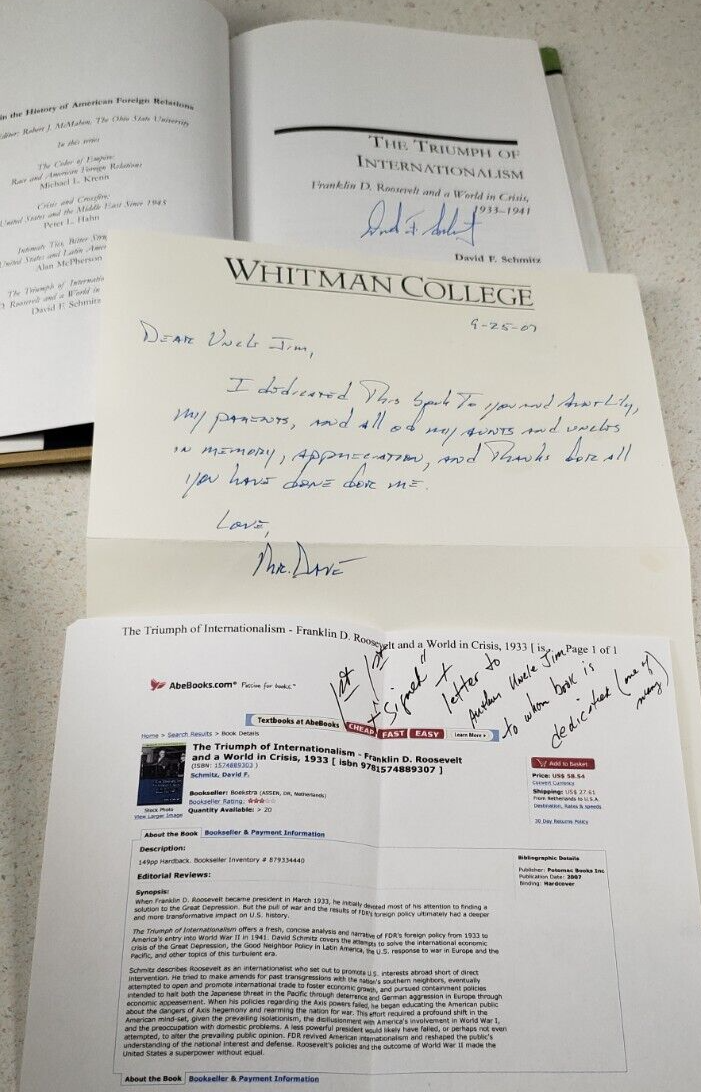 in the History of American Foreign Relations
Editor: Robert J. McMahon, The Ohio State University
In this series
The Color of Empire:
Race and American Foreign Relations
Michael L. Krenn
Crisis and Crossfire:
United States and the Middle East Since 1945
Peter L. Hahn
Intimate Ties, Bitter
United States and Latin
Alan McPherson
The Triumph of
D. Roosevelt and a World in
David F. Schmitz
THE TRIUMPH OF
INTERNATIONALISM
Franklin D. Roosevelt and a World in Crisis,
1933–1941
David F. Schmitz
David F. Schmitz
WHITMAN COLLEGE
9-25-07
DEAR UNCLE JIM,
I dedicated This book To you and Aunt Lily,
my parents, and all of my aunts and uncles
in memory, appreciation, and Thanks for all
you have done for me.
Love,
MR. DAVE
The Triumph of Internationalism - Franklin D. Roosevelt and a World in Crisis, 1933 [ is... Page 1 of 1
1st 1st
+ Signed" +
letter to
Author Uncle Jim
to whom book is
dedicated (one of
many)
AbeBooks.com® Passion for books.™
Textbooks at AbeBooks CHEAP FAST EASY Learn More »
Home > Search Results > Book Details
The Triumph of Internationalism - Franklin D. Roosevelt
and a World in Crisis, 1933 [ isbn 9781574889307 ]
(ISBN: 1574889303 )
Schmitz, David F.
Bookseller: Boekstra (ASSEN, DR, Netherlands)
Bookseller Rating:
Quantity Available: > 20
Stock Photo
View Larger Image
Add to Basket
Price: US$ 58.54
Convert Currency
Shipping: US$ 27.61
From Netherlands to U.S.A.
Destination, Rates & Speeds
30 Day Returns Policy
About the Book Bookseller & Payment Information
Description:
149pp Hardback. Bookseller Inventory # 879334440
Editorial Reviews:
Bibliographic Details
Publisher: Potomac Books Inc
Publication Date: 2007
Binding: Hardcover
Synopsis:
When Franklin D. Roosevelt became president in March 1933, he initially devoted most of his attention to finding a
solution to the Great Depression. But the pull of war and the results of FDR's foreign policy ultimately had a deeper
and more transformative impact on U.S. history.
The Triumph of Internationalism offers a fresh, concise analysis and narrative of FDR's foreign policy from 1933 to
America's entry into World War II in 1941. David Schmitz covers the attempts to solve the international economic
crisis of the Great Depression, the Good Neighbor Policy in Latin America, the U.S. response to war in Europe and the
Pacific, and other topics of this turbulent era.
Schmitz describes Roosevelt as an internationalist who set out to promote U.S. interests abroad short of direct
intervention. He tried to make amends for past transgressions with the nation's southern neighbors, eventually
attempted to open and promote international trade to foster economic growth, and pursued containment policies
intended to halt both the Japanese threat in the Pacific through deterrence and German aggression in Europe through
economic appeasement. When his policies regarding the Axis powers failed, he began educating the American public
about the dangers of Axis hegemony and rearming the nation for war. This effort required a profound shift in the
American mind-set, given the prevailing isolationism, the disillusionment with America's involvement in World War I,
and the preoccupation with domestic problems. A less powerful president would likely have failed, or perhaps not even
attempted, to alter the prevailing public opinion. FDR revived American internationalism and reshaped the public's
understanding of the national interest and defense. Roosevelt's policies and the outcome of World War II made the
United States a superpower without equal.
About the Book Bookseller & Payment Information